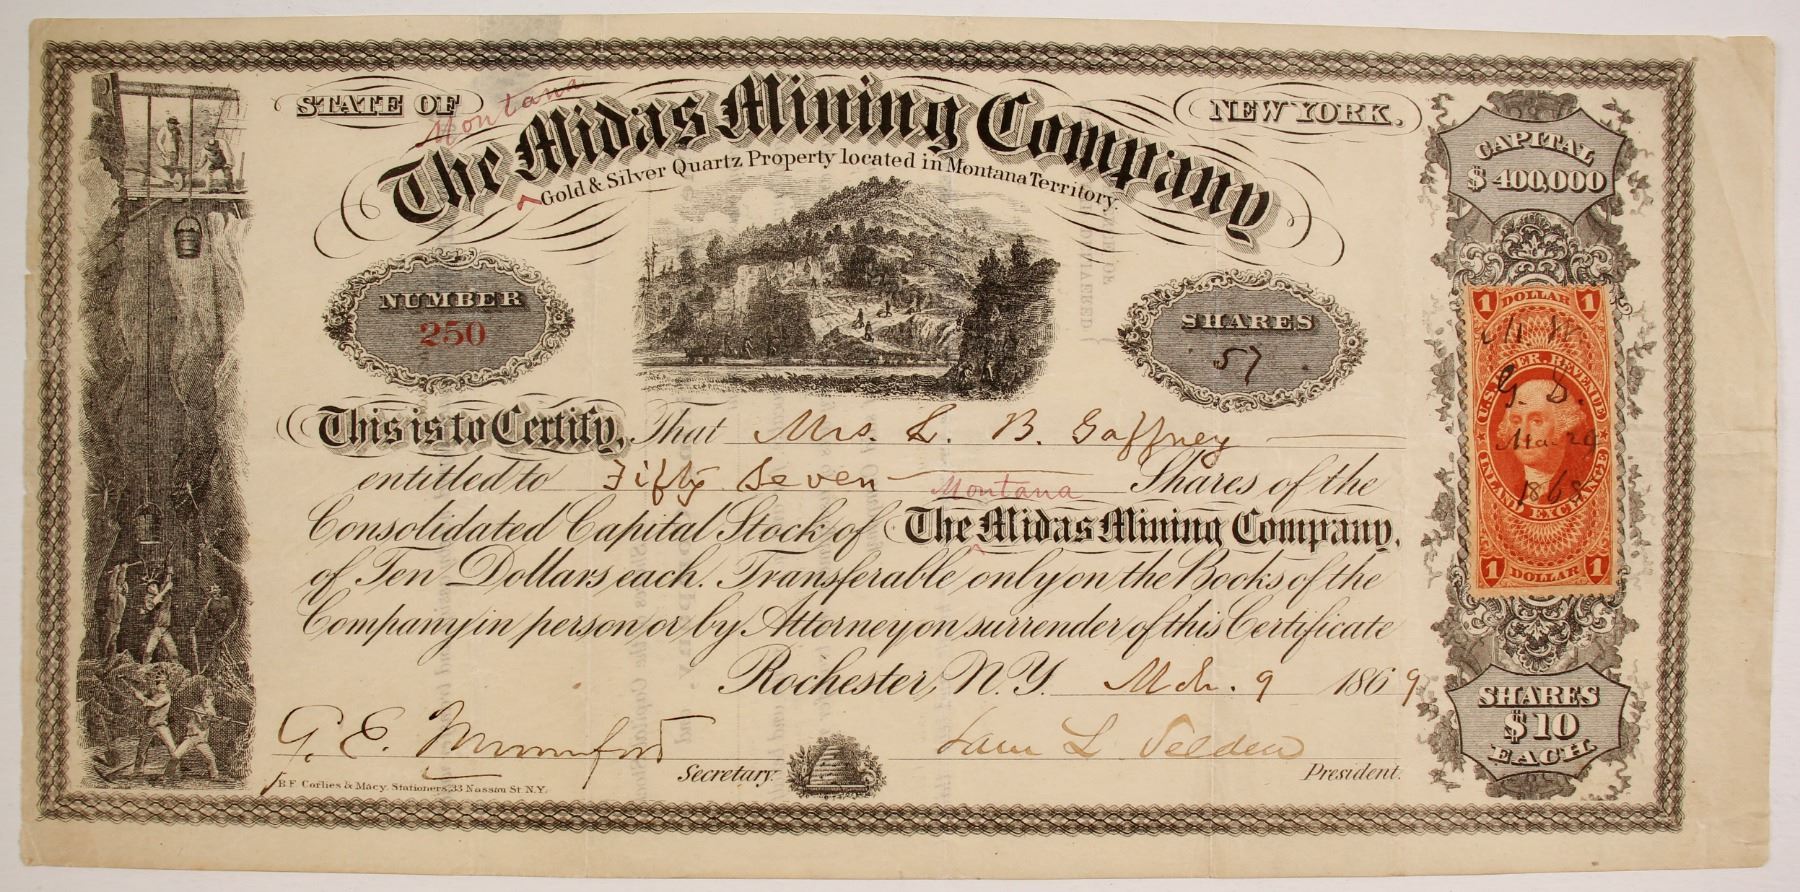 STATE OF
NEW YORK.
Montana
The Midas Mining Company
Gold & Silver Quartz Property located in Montana Territory.
NUMBER
250
SHARES
57
This is to Certify, That Mrs. L. B. Gaffney
entitled to Fifty Seven Shares of the
Montana
Consolidated Capital Stock of The Midas Mining Company,
of Ten Dollars each. Transferable only on the Books of the
Company in person or by Attorney on surrender of this Certificate
Rochester, N.Y. Mch. 9 1869
G. E. Mumford Secretary.
Sam L Selden President.
B.F. Corlies & Macy. Stationers, 33 Nassau St. N.Y.
CAPITAL
$400,000
1 DOLLAR 1
U.S. INTER. REVENUE
G. D.
Mar 29
INLAND EXCHANGE
1 DOLLAR 1
SHARES
$10
EACH.